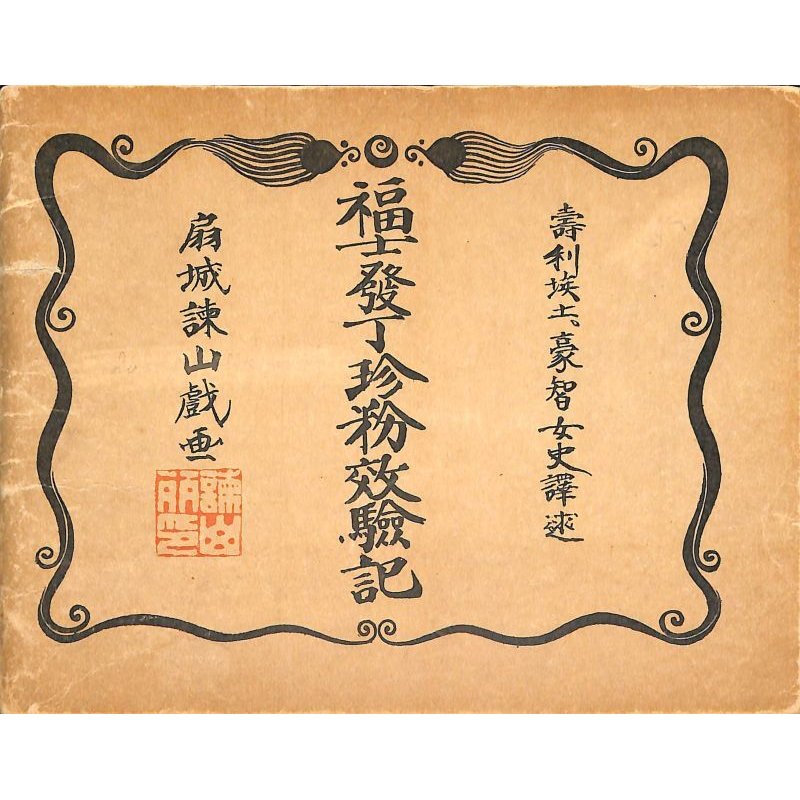 壽利埃土、豪智女史譯述
福士發丁珍粉效驗記
扇城諫山戲画